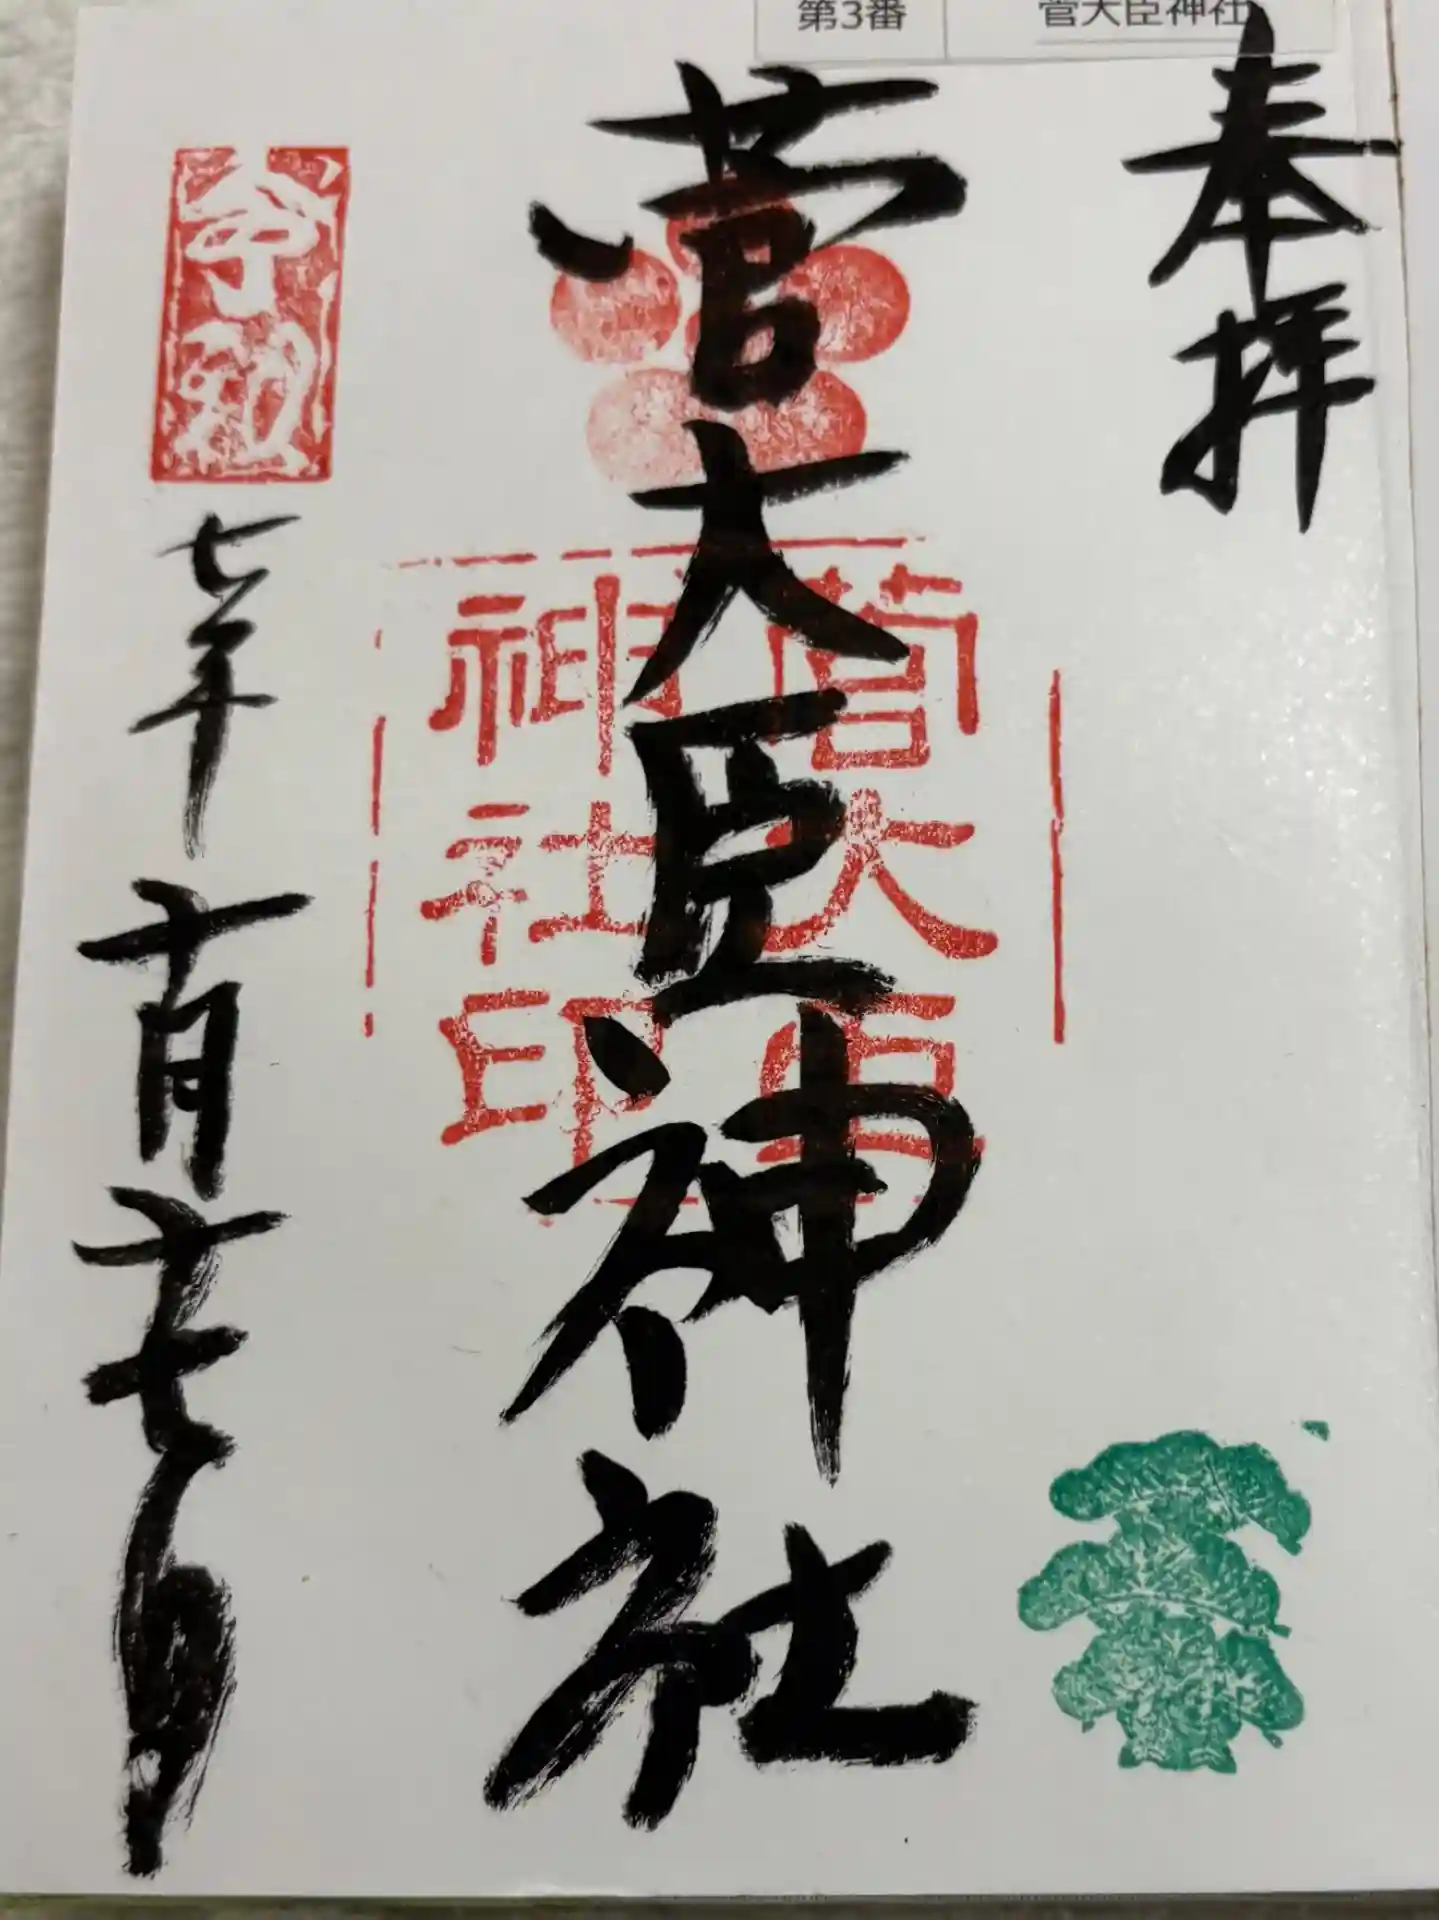 第3番 菅大臣神社
奉拝
菅大臣神社
菅大臣
神社印
令和
七年十月十七日